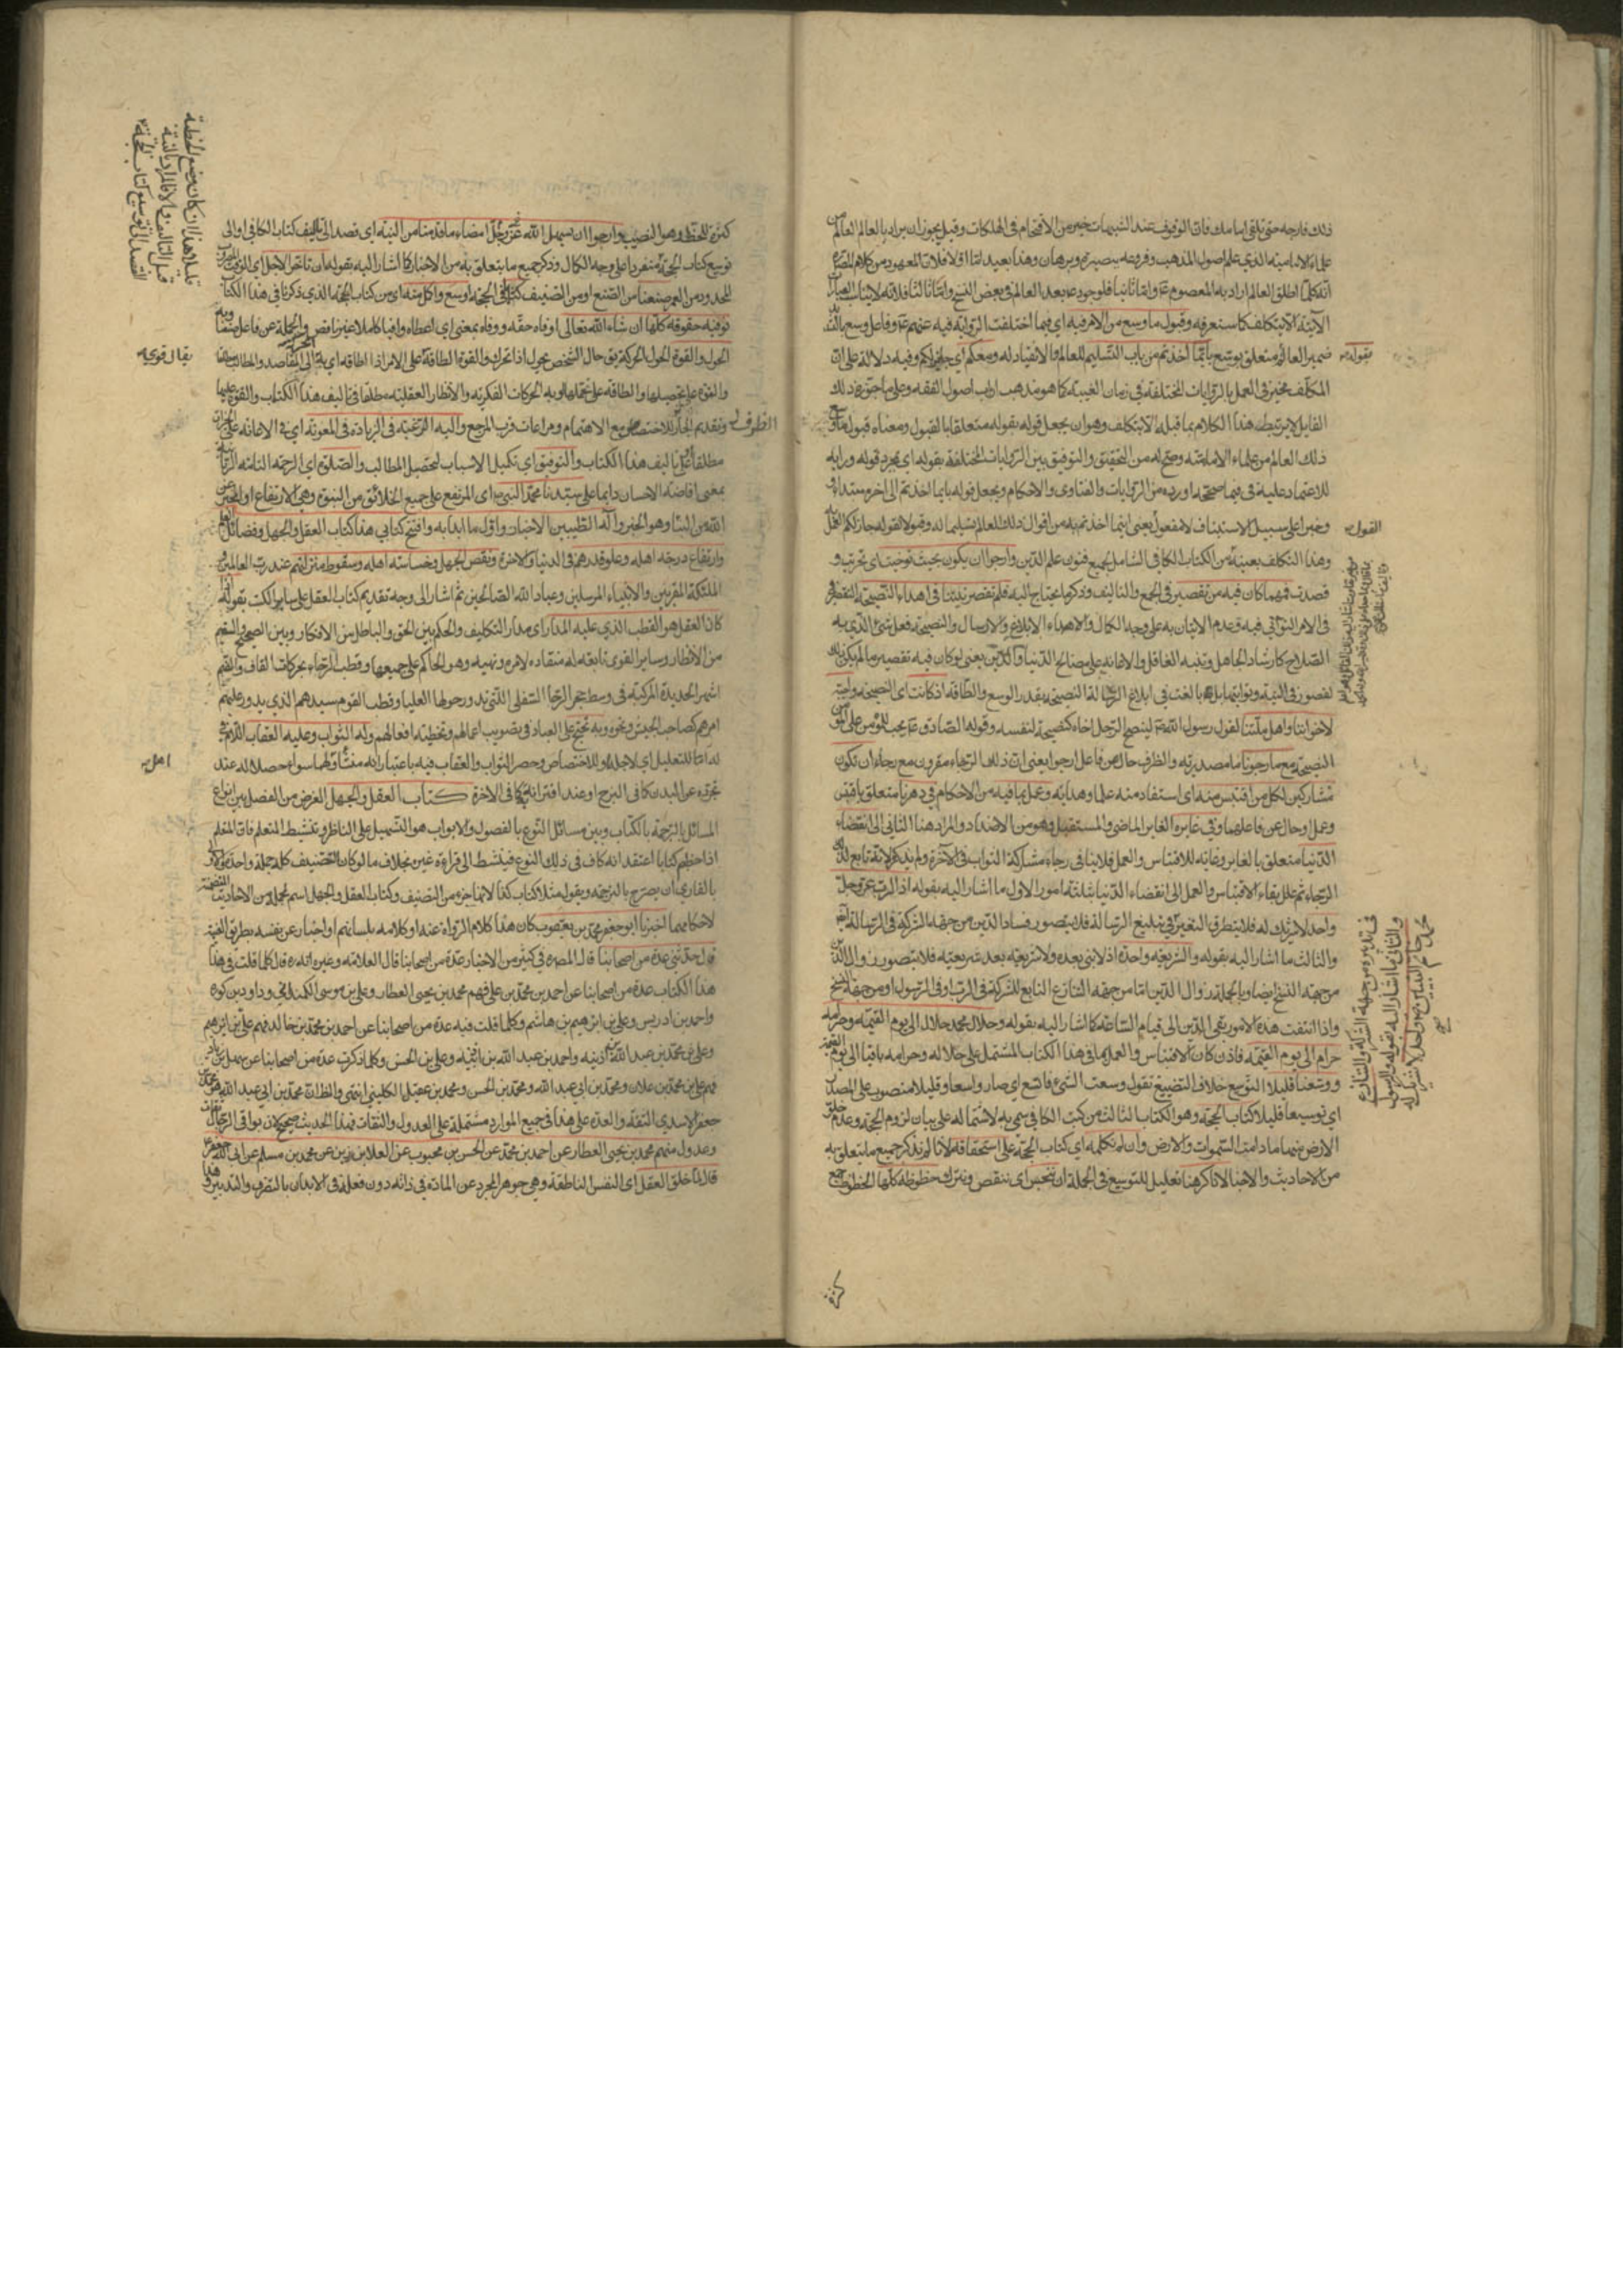 ذلك فارجه حتى تلقى امامك فان الوقوف عند الشبهات خير من الاقتحام في الهلكات وقيل يجوز ان يراد بالعالم العالم من
علماء الامامية الذي علم اصول المذهب وفروعه ببصيرة وبرهان وهذا بعيد اما اولا فلان المعهود من كلام المصره
انه كلما اطلق العالم اراد به المعصوم ع واما ثانيا فلوجود ع بعد العالم في بعض النسخ واما ثالثا فلانه لا يناسب العبارة
الآتية الا بتكلف كما ستعرفه وقبول ما وسع من الامر فيه اي فيما اختلفت الرواية فيه عنهم ع وفاعل وسع بالتشديد
ضمير العالم متعلق بوسع بايما اخذتم من باب التسليم للعالم والانقياد له وسعكم اي جاز لكم وفيه دلالة على ان
بقوله
المكلف مخير في العمل بالروايات المختلفة في زمان الغيبة كما هو مذهب ارباب اصول الفقه وعلى ما جوزه ذلك
القايل لا يرتبط هذا الكلام بما قبله الا بتكلف وهو ان يجعل قوله بقوله متعلقا بالقبول ومعناه قبول ما وسع
ذلك العالم من علماء الامامية وصح له من التحقيق والتوفيق بين الروايات المختلفة بقوله اي بمجرد قوله ورايه
للاعتماد عليه في فيما صححه واورده من الروايات والفتاوى والاحكام ويجعل قوله بايما اخذتم الى اخره مبتداء
وخبرا على سبيل الاستيناف لا مفعول يعني ايما اخذتم به من اقوال ذلك العالم تسليما له وقبولا لقوله جاز لكم العمل
القول
وهذا التكلف بعينه من الكتاب الكافي الشامل لجميع فنون علم الدين وارجوا ان يكون بحيث توخيت اي تحريت و
قصدت فمهما كان فيه من تقصير في الجمع والتاليف وذكر ما يحتاج اليه فلم تقصر نيتنا في اهداء النصيحة التقصير
في الامر التواني فيه وعدم الاتيان به على وجه الكمال والاهداء الابلاغ والارسال والنصيحة فعل شئ الذي به
الصلاح كارشاد الجاهل وتنبيه الغافل والاعانة على مصالح الدنيا والدين يعني لو كان فيه تقصير ما لم يكن ذلك
لقصور في النية وتوانيها بل بالغت في ابلاغ النصيحة بقدر الوسع والطاقة اذ كانت اي النصيحة واجبة
لاخواننا واهل ملتنا لقول رسول الله ص لينصح الرجل اخاه كنصيحته لنفسه وقوله الصادق ع يجب للمؤمن على المؤمن
النصيحة مع ما رجونا ما مصدرية والظرف حال من فاعل ارجوا يعني ان ذلك الرجاء مقرون مع رجاء ان نكون
مشاركين لكل من اقتبس منه اي استفاد منه علما وهداية وعمل بما فيه من الاحكام في دهرنا متعلق باقتبس
وعمل او حال عن فاعلهما وفي غابره الغابر الماضي والمستقبل وهو من الاضداد والمراد هنا الثاني الى انقضاء
الدنيا متعلق بالغابر وغاية للاقتباس والعمل فلا ينافي رجاء مشاركة الثواب في الآخرة ولم يذكر لانه تابع لذلك
الرجاء ثم علل بقاء الاقتباس والعمل الى انقضاء الدنيا بثلثة امور الاول ما اشار اليه بقوله اذ الرب عز وجل
واحد لا شريك له فلا يتطرق التغير في تبليغ الرسالة فلا يتصور فساد الدين من جهة الشركة في الرسالة
والثالث ما اشار اليه بقوله والشريعة واحدة اذ لا نبي بعده ولا شريعة بعد شريعته فلا يتصور زوال الدين
من جهة النسخ ايضا وبالجملة زوال الدين اما من جهة التنازع التابع للشركة في الرب او في الرسول او من جهة النسخ
واذا انتفت هذه الامور بقي الدين الى قيام الساعة كما اشار اليه بقوله وحلال محمد حلال الى يوم القيمة وحرامه
حرام الى يوم القيمة فاذن كان الاقتباس والعمل بما في هذا الكتاب المشتمل على حلاله وحرامه باقيا الى يوم القيمة
ووسعنا قليلا التوسيع خلاف التضييق تقول وسعت الشئ فاتسع اي صار واسعا وقليلا منصوب على المصدر
اي توسيعا قليلا كتاب الحجة وهو الكتاب الثالث من كتب الكافي سمي به لاشتماله على بيان لزوم الحجة وعدم خلو
الارض منها ما دامت السموات والارض وان لم نكمله اي كتاب الحجة على استحقاقه لانا لم نذكر جميع ما يتعلق به
من الاحاديث والاخبار لانا كرهنا تعليل للتوسيع في الجملة ان نبخس اي ننقص ونترك حظوظه كلها الحظوظ جمع
في تدبيره من جهة الشركة والتنازع
والثاني ما اشار اليه بقوله والرسول
محمد خاتم النبيين واحد لا شريك له
صح
كثرة
كثرة للحظ وهو النصيب وارجوا ان يسهل الله عز وجل امضاء ما قدمنا من النية اي قصد الى تاليف كتاب الكافي او الى
توسيع كتاب الحجة منفردا على وجه الكمال وذكر جميع ما يتعلق به من الاخبار كما اشار اليه بقوله ان تاخر الاجل اي الوقت
المحدود من العمر صنعنا من الصنع او من التصنيف كتابا في الحجة اوسع واكمل منه اي من كتاب الحجة الذي ذكرنا في هذا الكتاب
نوفيه حقوقه كلها ان شاء الله تعالى اوفاه حقه ووفاه بمعنى اي اعطاه وافيا كاملا غير ناقص والجملة حال عن فاعل صنفنا وبه
الحول والقوة الحول الحركة يق حال الشخص يحول اذا تحرك والقوة الطاقة على الامر اذا اطاقه اي به الحركة الى المقاصد والمطالب
يقال قوي
والقوة على تحصيلها والطاقة على تحملها او به الحركات الفكرية والانظار العقلية مطلقا في تاليف هذا الكتاب والقوة عليها
وتقديم الجار للاختصاص مع الاهتمام ومراعات قرب المرجع واليه الرغبة في الزيادة في المعونة اي في الاعانة على الخيرات
الظرف
مطلقا او على تاليف هذا الكتاب والتوفيق اي تكميل الاسباب لتحصيل المطالب والصلوة اي الرحمة التامة الربانية
بمعنى افاضة الاحسان دائما على سيدنا محمد النبي اي المرتفع على جميع الخلائق من النبوة وهي الارتفاع او المخبر عن
الله من النبا وهو الخبر وآله الطيبين الاخيار واول ما ابدا به وافتتح كتابي هذا كتاب العقل والجهل وفضائل العلم
وارتفاع درجة اهله وعلو قدرهم في الدنيا والاخرة ونقص الجهل وخساسة اهله وسقوط منزلتهم عند رب العالمين و
الملئكة المقربين والانبياء المرسلين وعباد الله الصالحين ثم اشار الى وجه تقديم كتاب العقل على ساير الكتب بقوله
اذ كان العقل هو القطب الذي عليه المدار اي مدار التكليف والحكم بين الحق والباطل من الافكار وبين الصحيح والسقيم
من الانظار وساير القوى تابعة له منقادة لامره ونهيه وهو الحاكم على جميعها وقطب الرحاء بحركات القاف والضم
اشهر الحديدة المركبة في وسط حجر الرحا السفلى التي تدور حولها العليا وقطب القوم سيدهم الذي يدور عليه
امرهم كصاحب الجيش ونحوه وبه يحتج على العباد في تصويب اعمالهم وتخطئة افعالهم وله الثواب وعليه العقاب اللام في
له اما للتعليل اي لاجله او للاختصاص وحصر الثواب والعقاب فيه باعتبار انه منشأ لهما سواء حصلا له عند
تجرده عن البدن كما في البرزخ او عند اقترانه كما في الاخرة كتاب العقل والجهل الغرض من الفصل بين انواع
المسائل بالترجمة بالكتاب وبين مسائل النوع بالفصول والابواب هو التسهيل على الناظر وتنشيط المتعلم فان المتعلم
اذا ختم كتابا اعتقد انه كاف في ذلك النوع فينشط الى قراءة غيره بخلاف ما لو كان التصنيف كله جملة واحدة
بالقاري ان يصرح بالترجمة ويقول مثلا كتاب كذا لانها جزء من التصنيف وكتاب العقل والجهل اسم لجملة من الاحاديث
لاحكامهما اخبرنا ابو جعفر محمد بن يعقوب كان هذا كلام الرواة عنه او كلامه بلسانهم او اخبار عن نفسه بطريق الغيبة
قال حدثني عدة من اصحابنا قال المصره في كثير من الاخبار عدة من اصحابنا قال العلامة وغيره انه ره قال كلما قلت في هذا
هذا الكتاب عدة من اصحابنا عن احمد بن محمد بن علي فهم محمد بن يحيى العطار وعلي بن موسى الكمنداني وداود بن كورة
واحمد بن ادريس وعلي بن ابراهيم بن هاشم وكلما قلت فيه عدة من اصحابنا عن احمد بن محمد بن خالد فهم علي بن ابراهيم
وعلي بن محمد بن عبد الله بن اذينة واحمد بن عبد الله بن امية وعلي بن الحسن وكلما ذكرت عدة من اصحابنا عن سهل بن زياد
فهم علي بن محمد بن علان ومحمد بن ابي عبد الله ومحمد بن الحسن ومحمد بن عقيل الكليني انتهى والظان محمد بن ابي عبد الله هو محمد بن
جعفر الاسدي الثقة والعدة على هذا في جميع الموارد مشتملة على العدول والثقات فهذا الحديث صحيح لان بواقي الرجال ثقات
وعدول منهم محمد بن يحيى العطار عن احمد بن محمد عن الحسن بن محبوب عن العلا بن رزين عن محمد بن مسلم عن ابي جعفر ع
قال لما خلق الله العقل اي النفس الناطقة وهي جوهر المجرد عن المادة في ذاته دون فعله في الابدان بالتصرف والتدبير
قليلا هذا ان كان وضع الخطبة
قبل التاليف والا فالمراد بالنية
القصد الى توسيع كتاب الحجة